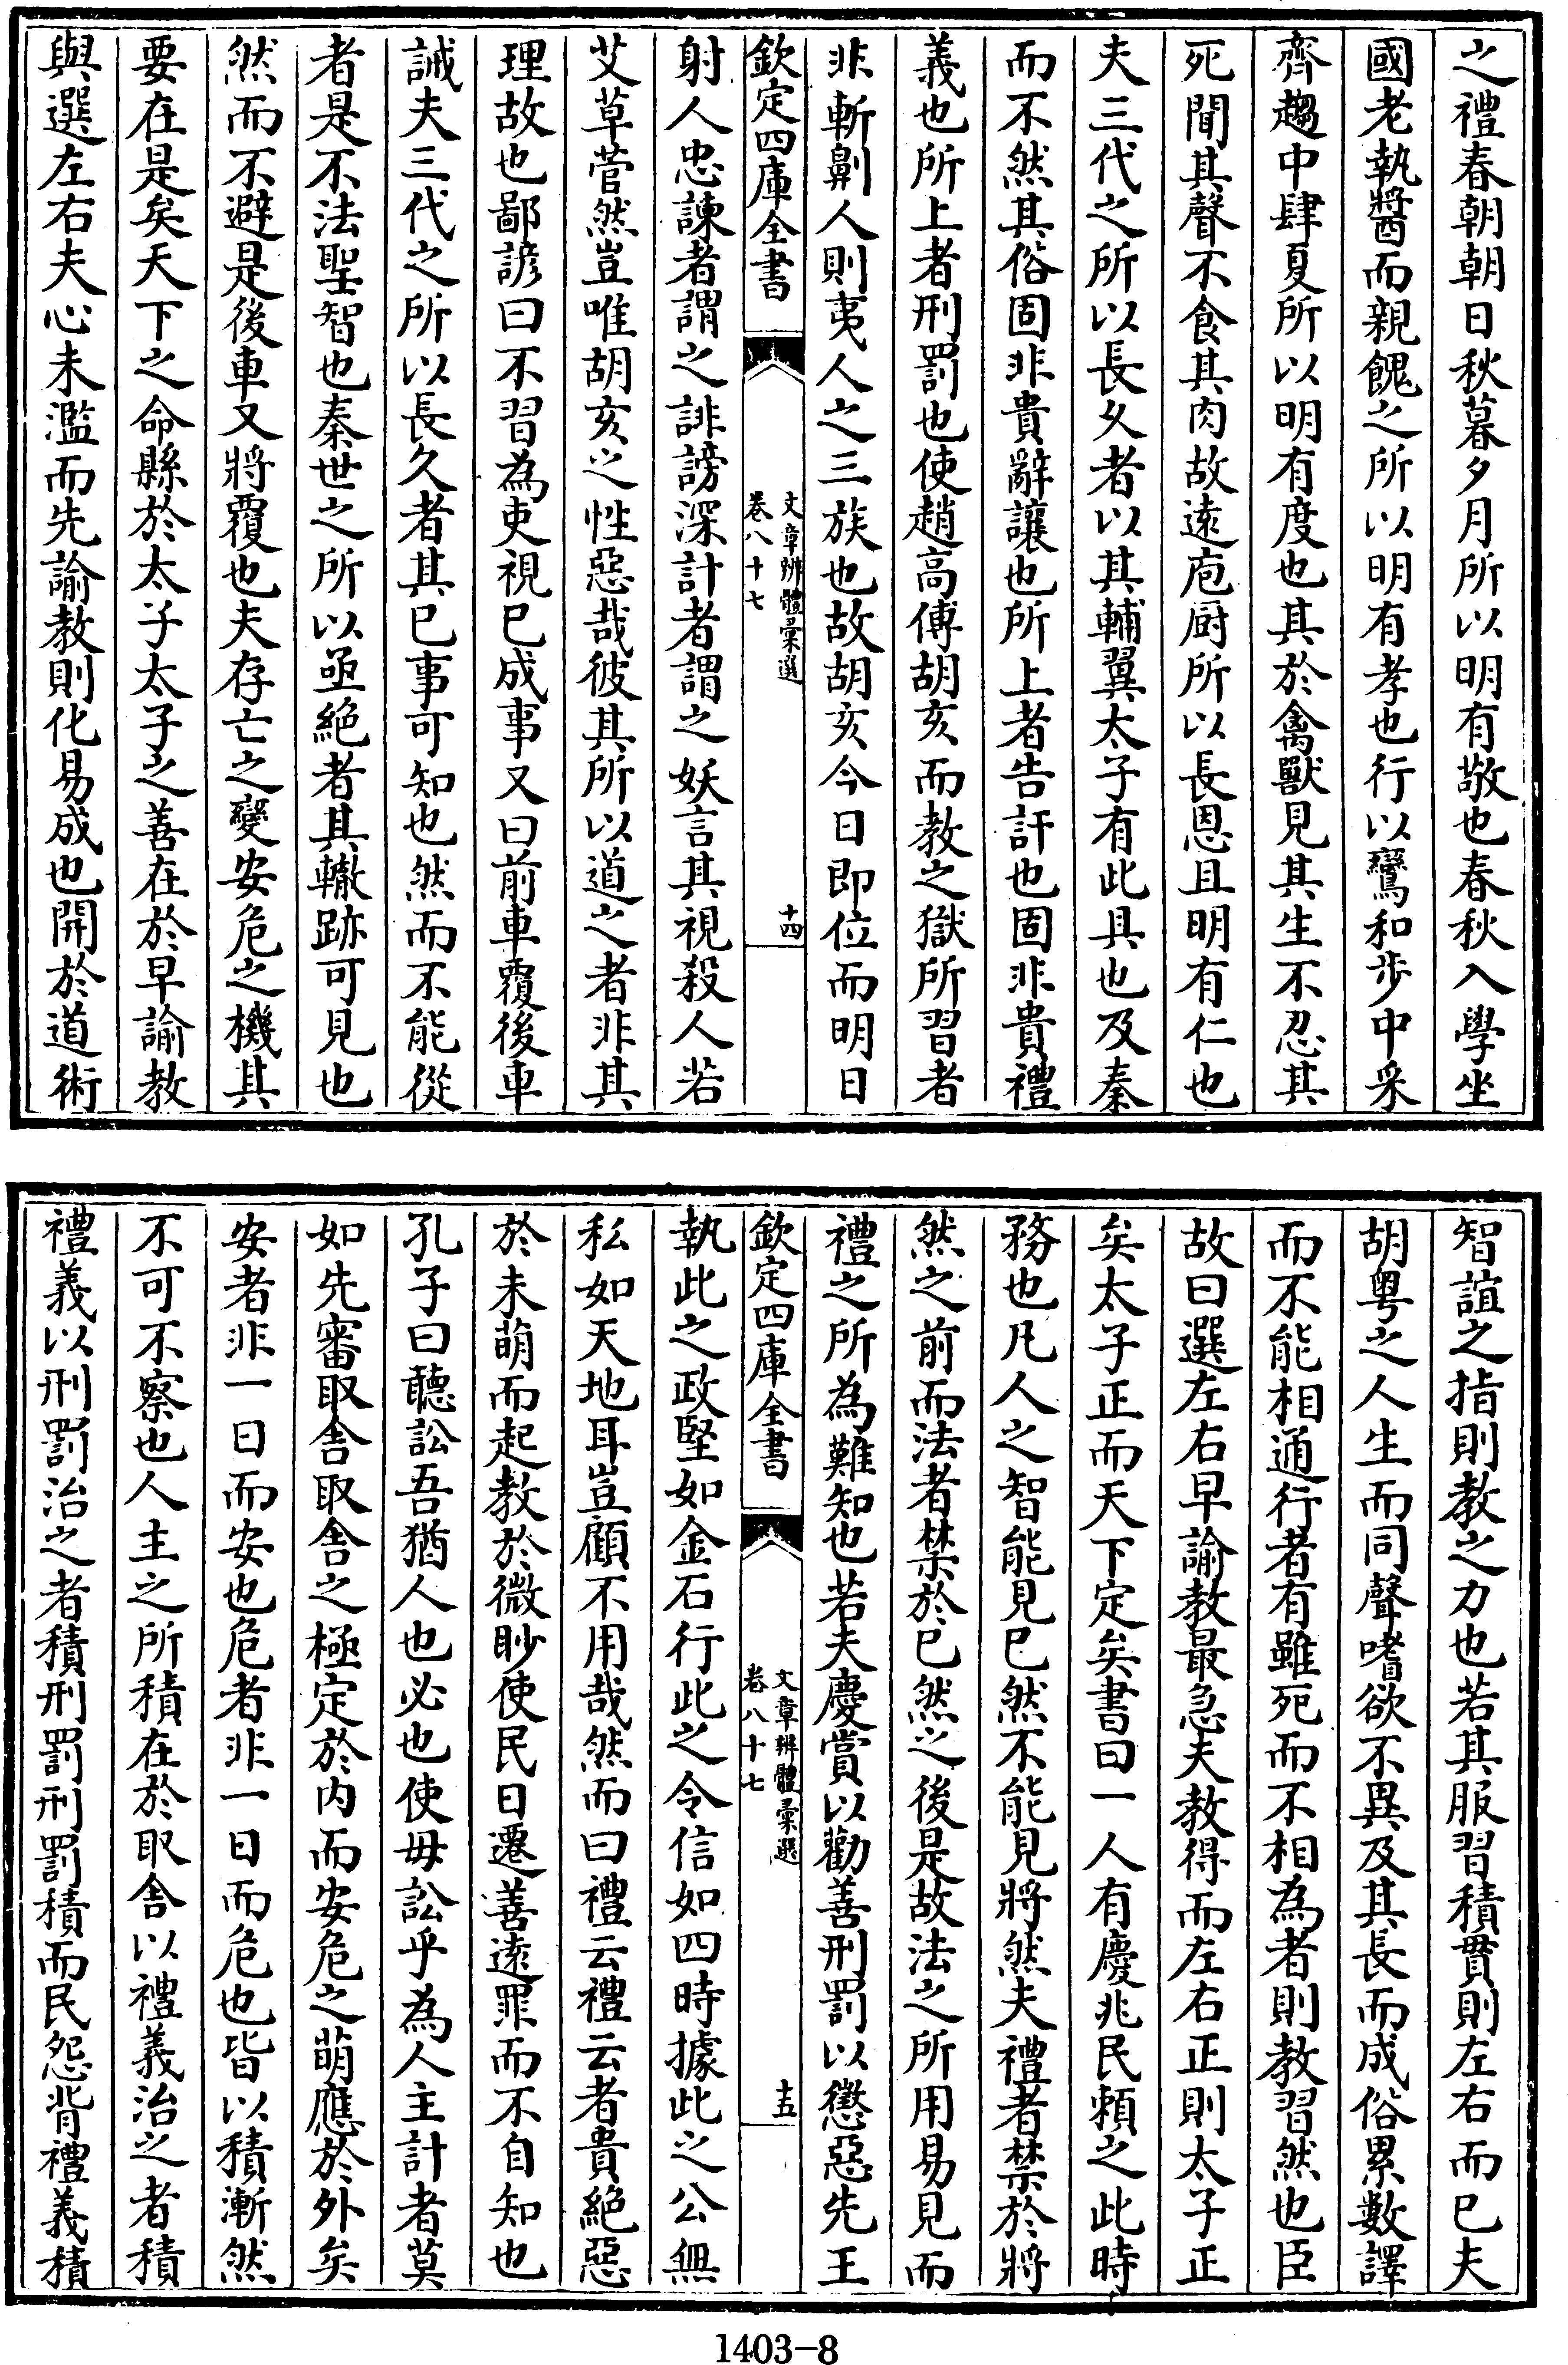 之禮春朝朝日秋暮夕月所以明有敬也春秋入學坐
國老執醬而親餽之所以明有孝也行以鸞和步中采
齊趨中肆夏所以明有度也其於禽獸見其生不忍其
死聞其聲不食其肉故逺庖厨所以長恩且明有仁也
夫三代之所以長乆者以其輔翼太子有此具也及秦
而不然其俗固非貴辭讓也所上者告訐也固非貴禮
義也所上者刑罰也使趙高傅胡亥而教之獄所習者
非斬劓人則夷人之三族也故胡亥今日即位而明日
欽定四庫全書
文章辨體彙選
卷八十七
十四
射人忠諫者謂之誹謗深計者謂之妖言其視殺人若
艾草菅然豈唯胡亥之性惡哉彼其所以道之者非其
理故也鄙諺曰不習為吏視已成事又曰前車覆後車
誡夫三代之所以長久者其已事可知也然而不能從
者是不法聖智也秦世之所以亟絶者其轍跡可見也
然而不避是後車又將覆也夫存亡之變安危之機其
要在是矣天下之命縣於太子太子之善在於早諭教
與選左右夫心未濫而先諭教則化易成也開於道術
智誼之指則教之力也若其服習積貫則左右而已夫
胡粤之人生而同聲嗜欲不異及其長而成俗累數譯
而不能相通行者有雖死而不相為者則教習然也臣
故曰選左右早諭教最急夫教得而左右正則太子正
矣太子正而天下定矣書曰一人有慶兆民頼之此時
務也凡人之智能見已然不能見將然夫禮者禁於將
然之前而法者禁於已然之後是故法之所用易見而
禮之所為難知也若夫慶賞以勸善刑罰以懲惡先王
欽定四庫全書
文章辨體彙選
卷八十七
十五
執此之政堅如金石行此之令信如四時據此之公無
私如天地耳豈顧不用哉然而曰禮云禮云者貴絶惡
於未萌而起教於微眇使民日遷善逺罪而不自知也
孔子曰聽訟吾猶人也必也使毋訟乎為人主計者莫
如先審取舎取舎之極定於内而安危之萌應於外矣
安者非一日而安也危者非一日而危也皆以積漸然
不可不察也人主之所積在於取舎以禮義治之者積
禮義以刑罰治之者積刑罰刑罰積而民怨背禮義積
1403-8